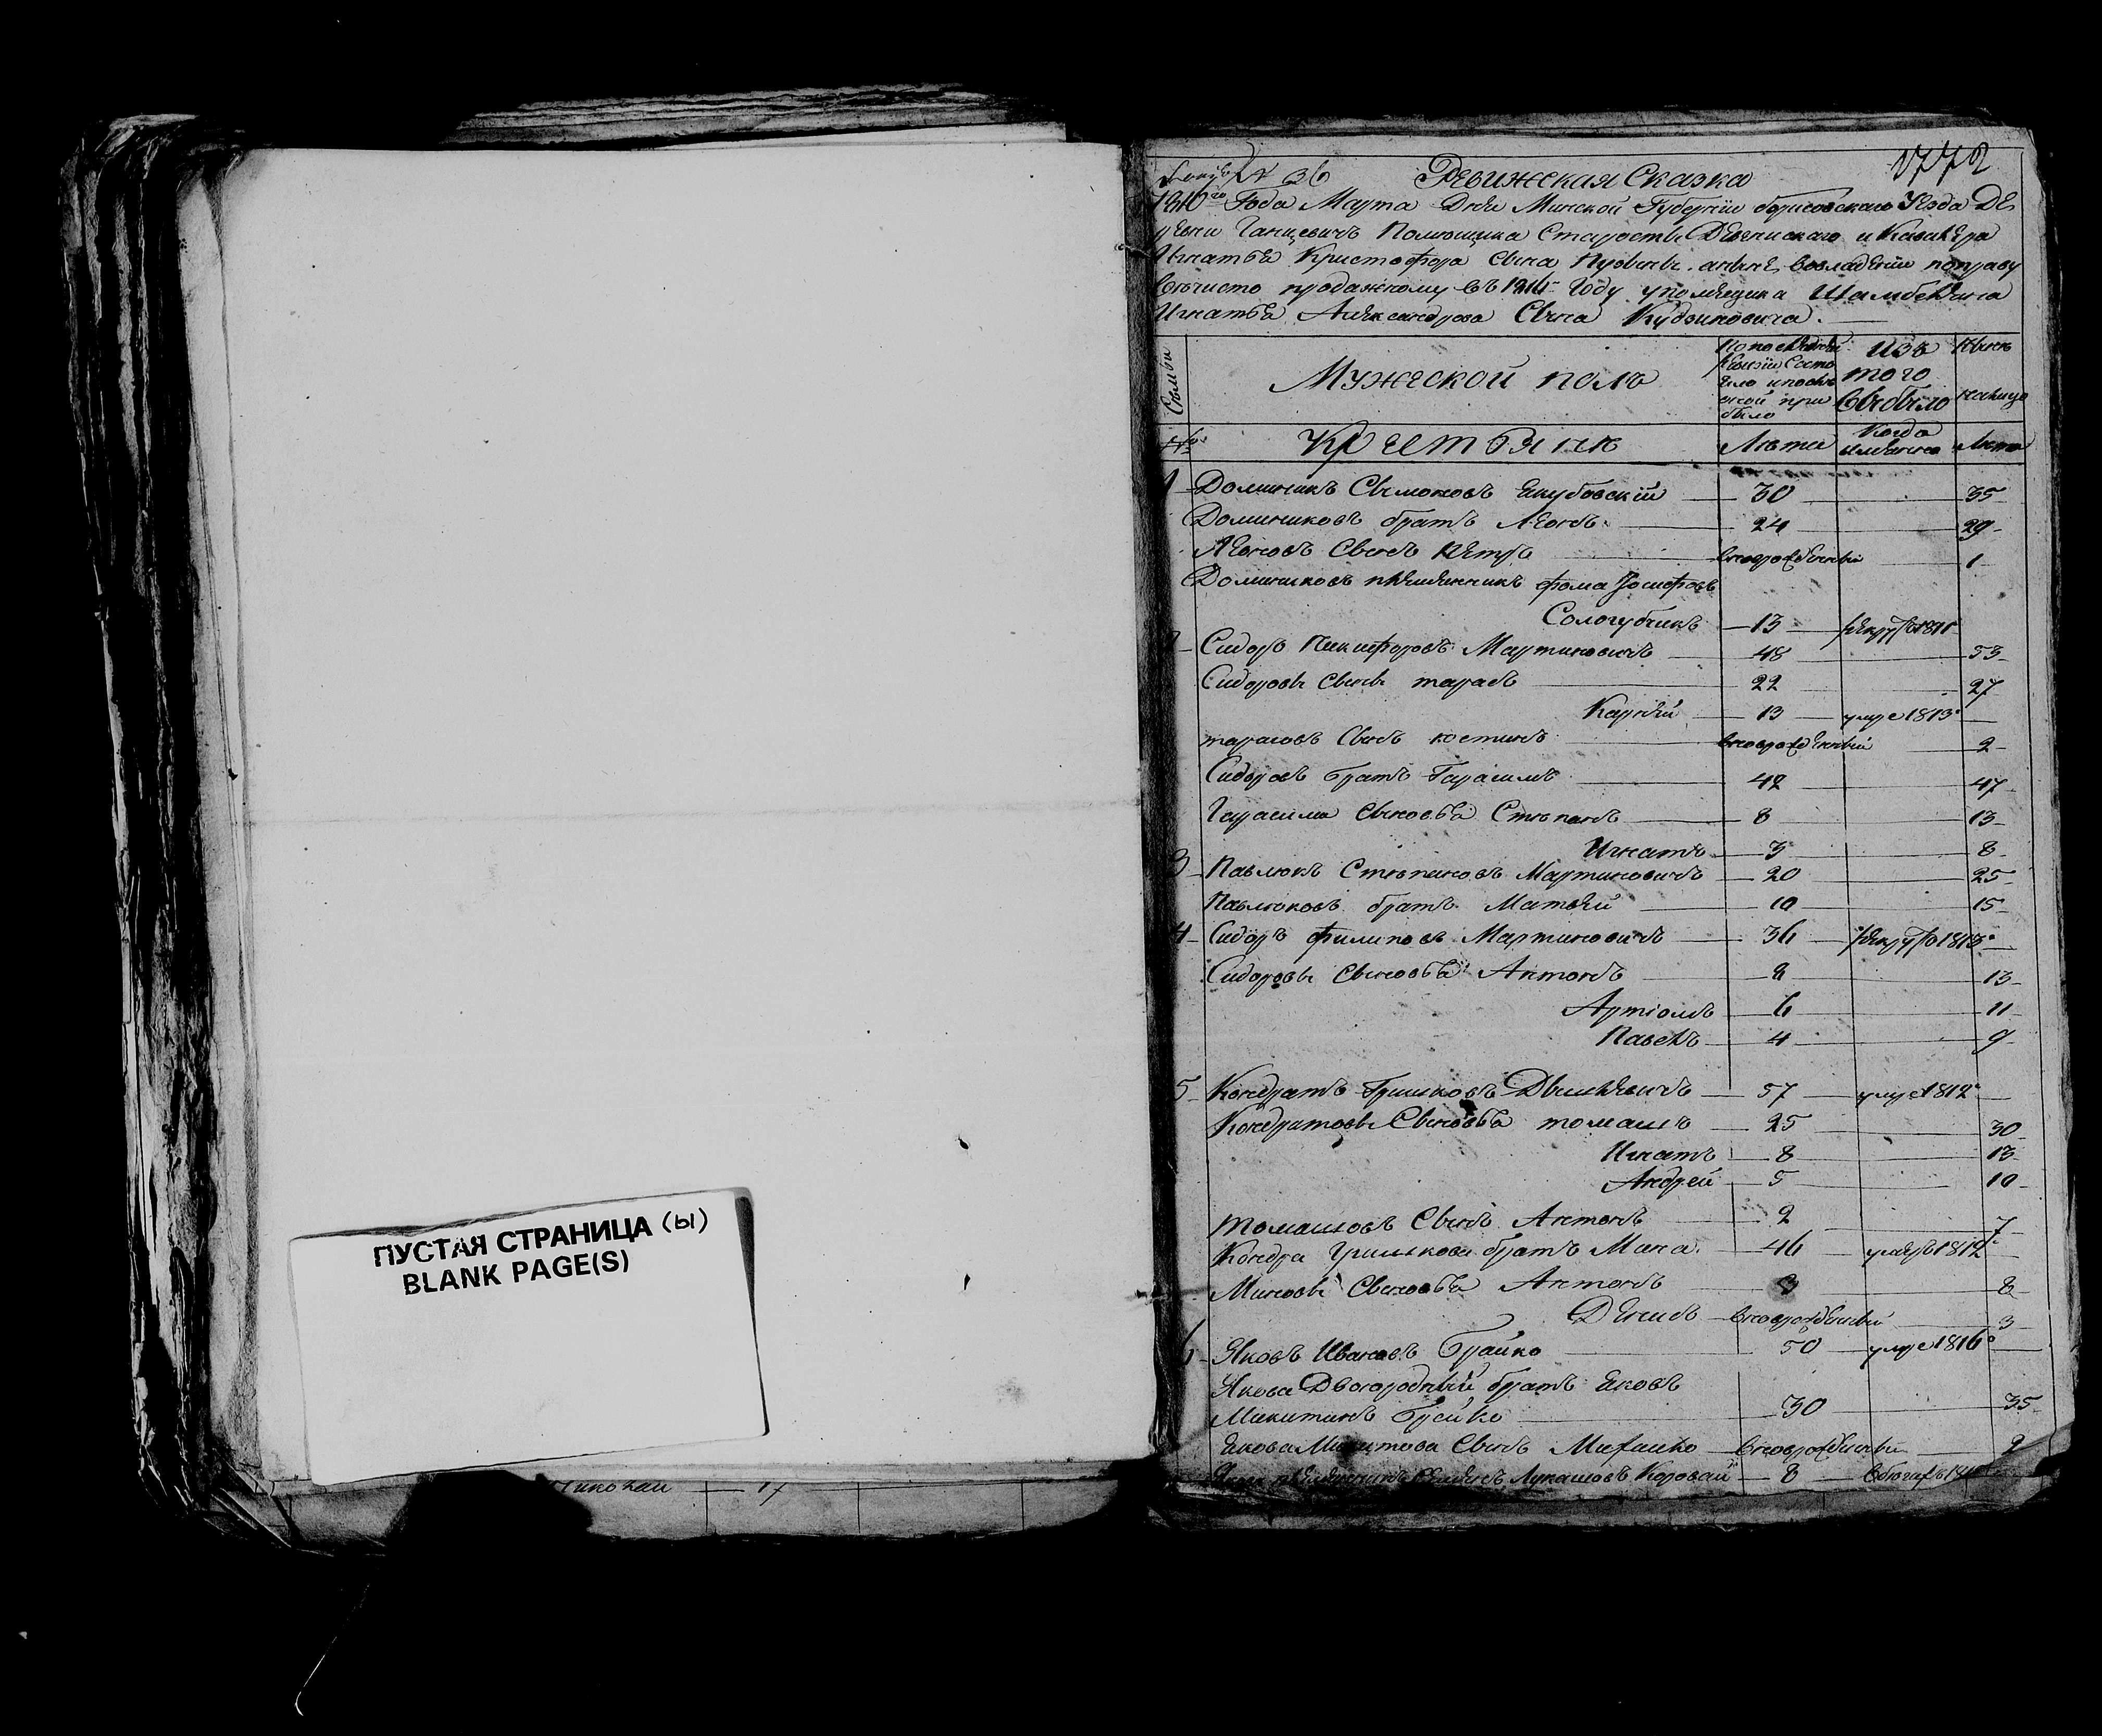 ПУСТАЯ СТРАНИЦА (ы)
BLANK PAGE(S)
Николай 17
№ 36 Ревижская Сказка 1772
1816го Года Марта Дня Минской Губернiи борисовскаго Уезда Де
ревни Ганцевичъ Помещика Старосты Девенискаго и Кавалера
Игнатья Кристофора Сына Пузыны. а ныне во владенiи по праву
вечисто продажному въ 1814 Году у помещика Шамбеляна
Игнатья Александрова Сына Кудзиновича.
Семьи
Мужеской полъ
По последней ревизiи состояло и после оной прибыло
Изъ того выбыло
Ныне налицо
№ Крестьяне Лета Когда именно Лета
1 Доминикъ Сымоновъ Якубовскiй 30 35
Доминиковъ братъ Леонъ 24 29
Леоновъ Сынъ Петръ вноврожденный 1
Доминиковъ племянникъ фома Иосифовъ
Сологубчикъ 13 рекрутъ 1811
2 Сидоръ Никифоровъ Мартиновичъ 48 53
Сидоровы сыны тарасъ 22 27
Карней 13 умре 1813°
тарасовъ Сынъ костинъ вновророжденный 2
Сидоровъ братъ Гарасимъ 42 47
Гарасима Сыновья Степанъ 8 13
Игнатъ 3 8
3 Павлюкъ Степановъ Мартиновичъ 20 25
Павлюковъ братъ Матвей 10 15
4 Сидоръ филиповъ Мартиновичъ 36 рекрутъ 1813°
Сидоровы Сыновья Антонъ 8 13
Артiомъ 6 11
Павелъ 4 9
5 Кондратъ Гришковъ Двилевичъ 57 умре 1812°
Кондратовы Сыновья томашъ 25 30
Игнатъ 8 13
Андрей 5 10
томашовъ Сынъ Антонъ 2 7
Кондра Гришкова братъ Мина 46 умеръ 1812
Миновы Сыновья Антонъ 3 8
Денисъ вновророжденный 3
6 Яковъ Ивановъ Грайко 50 умре 1816°
Якова Двоюродный братъ Яковъ
Микитинъ Грейко 30 35
Якова Микитова Сынъ Михалко вноворожденный 2
племянникъ Лукашовъ Коровай 8